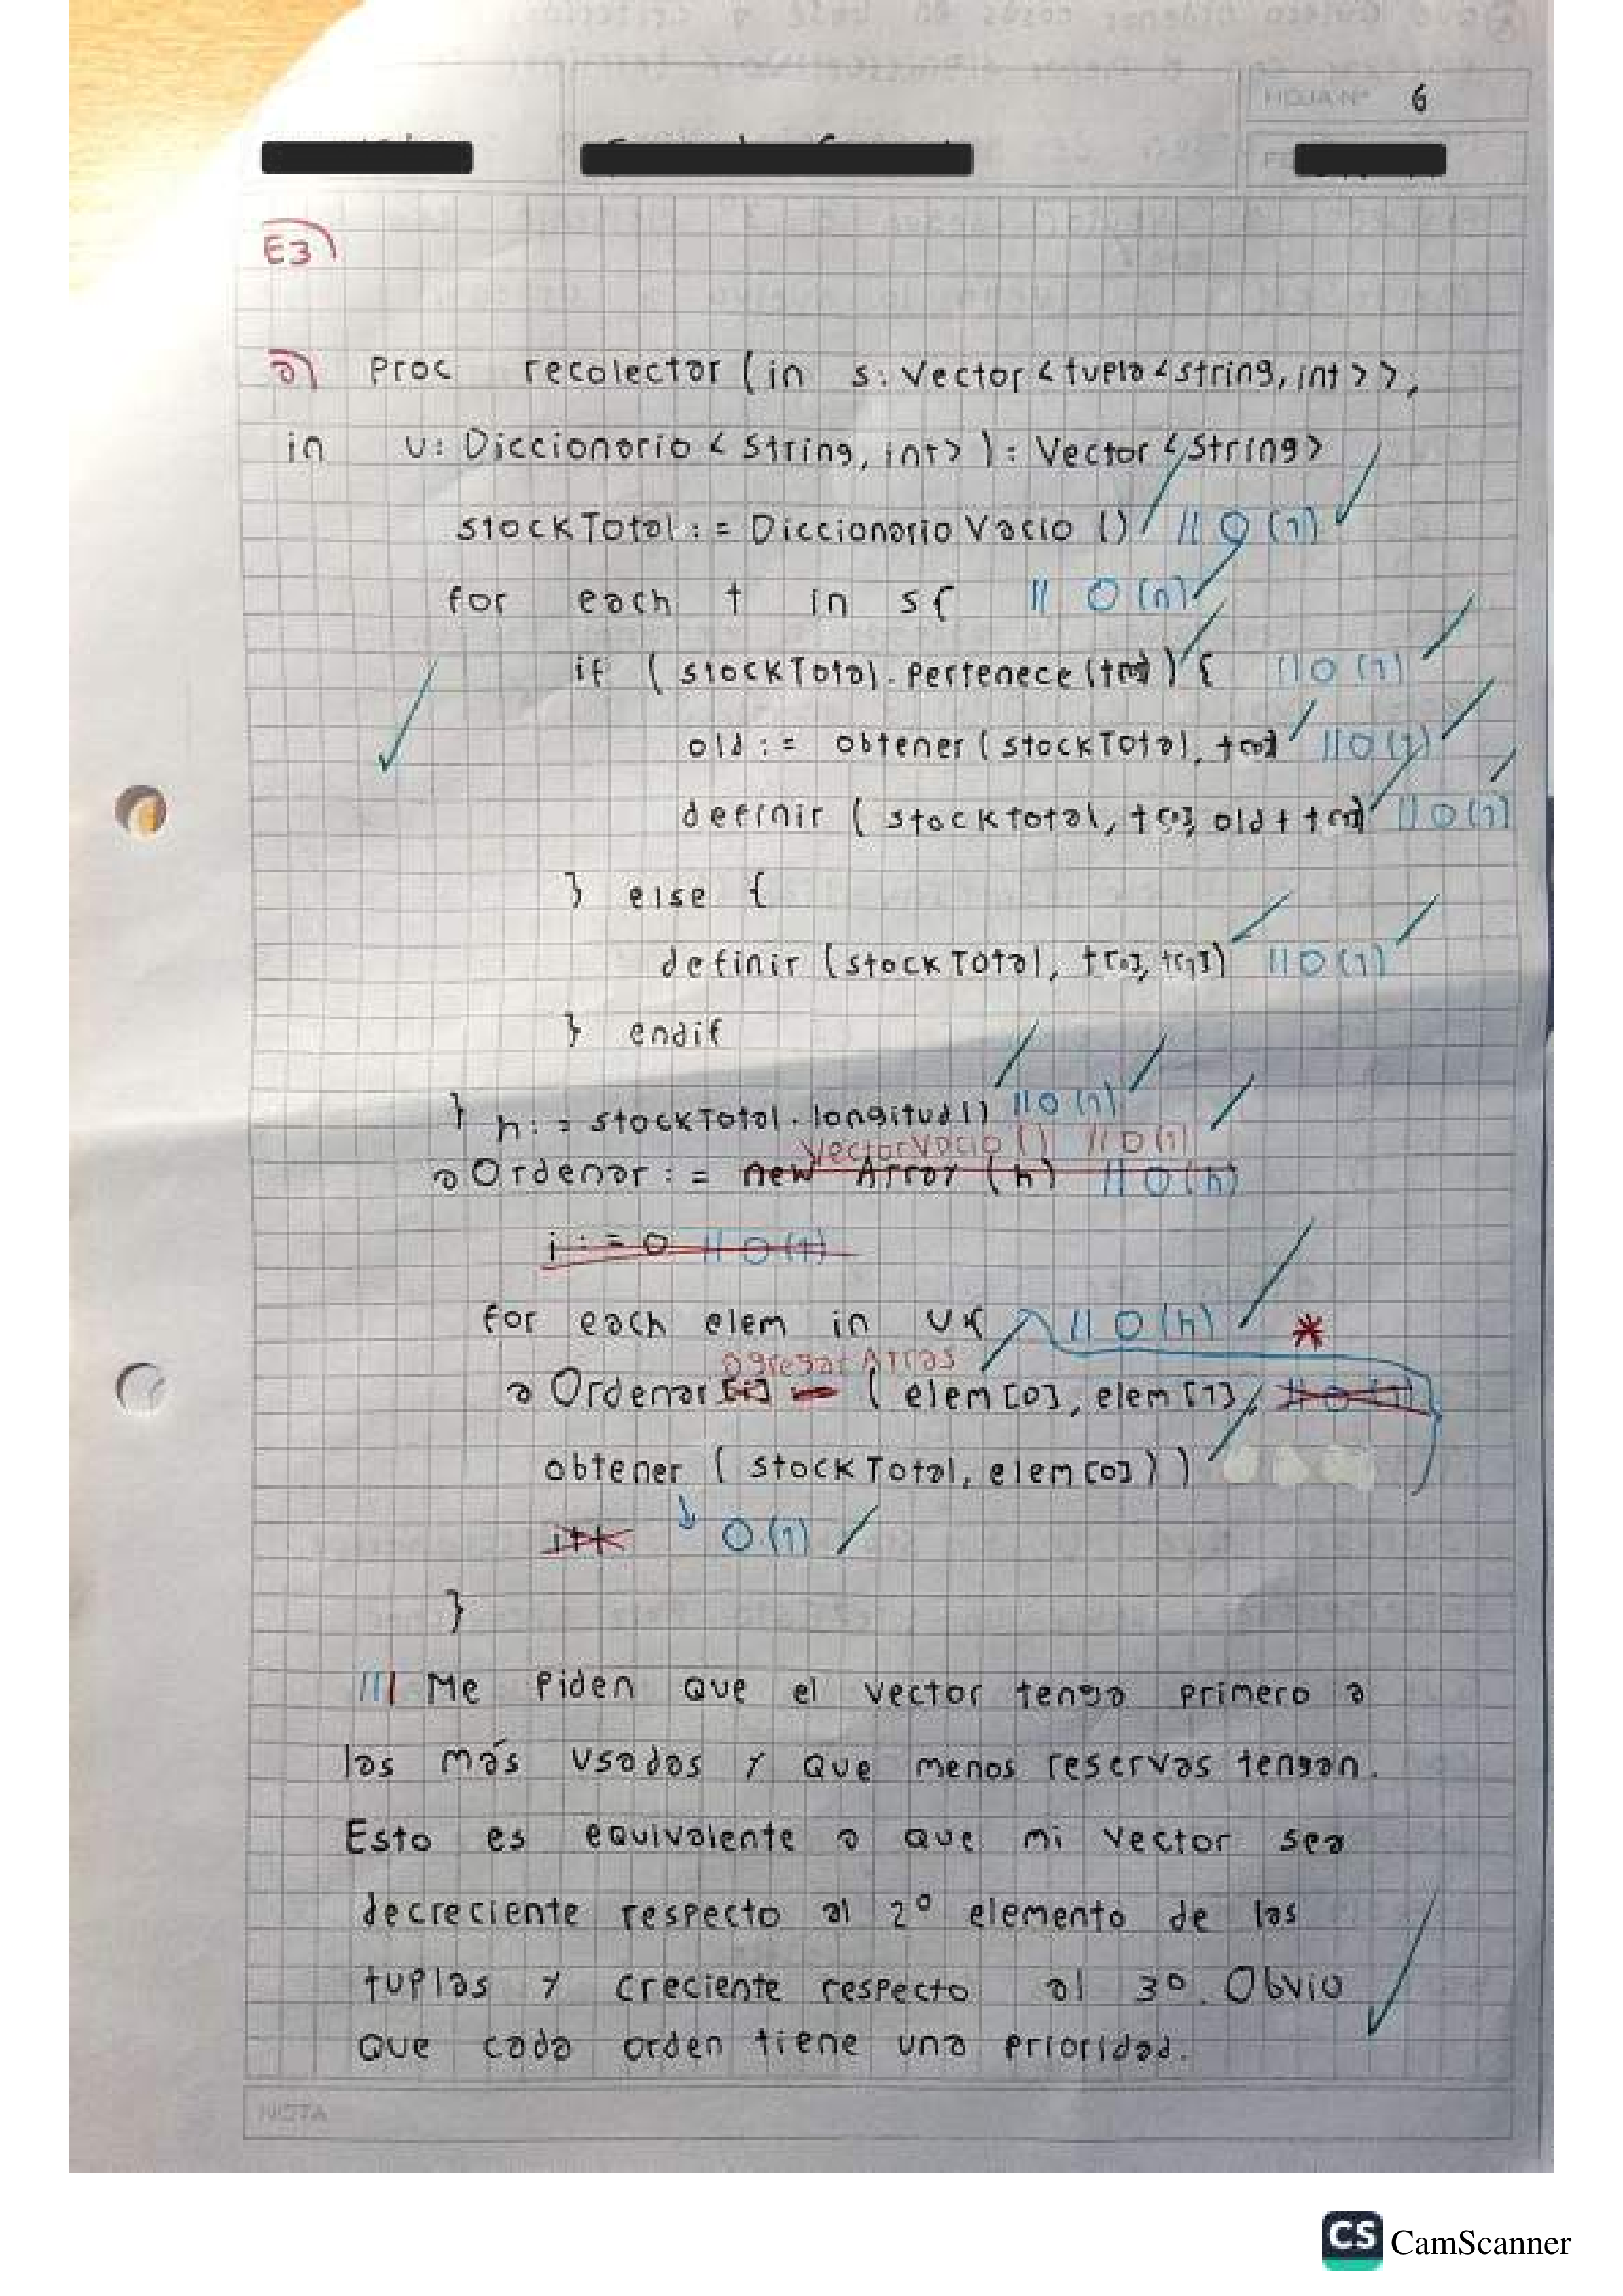 HOJA Nº 6
E3)
a) Proc recolector (in s: Vector <tupla <string, int>>,
in u: Diccionario < string, int> ) : Vector <string>
stockTotal := Diccionario Vacio () // O (1)
for each t in s{ // O (n)
if ( stockTotal. Pertenece (t[0]) ) { // O (1)
old := obtener ( stockTotal, t[0] // O (1)
definir ( stocktotal, t[0], old + t[1]) // O (1)
} else {
definir (stockTotal, t[0], t[1]) // O (1)
} endif
} h: = stockTotal. longitud () // O (1)
VectorVacio () // O (1)
a Ordenar : = new Array (h) // O (h)
i : = 0 // O (1)
for each elem in u{ // O (h) *
agregar Atras
a Ordenar [i] ( elem [0], elem [1], // O (1)
obtener ( stock Total, elem [0] ) )
i++ O (1)
}
/// Me Piden que el vector tenga primero a
las más usadas y que menos reservas tengan.
Esto es equivalente a que mi vector sea
decreciente respecto al 2º elemento de las
tuplas y creciente respecto al 3º. Obvio
que cada orden tiene una prioridad.
NOTA
CS CamScanner